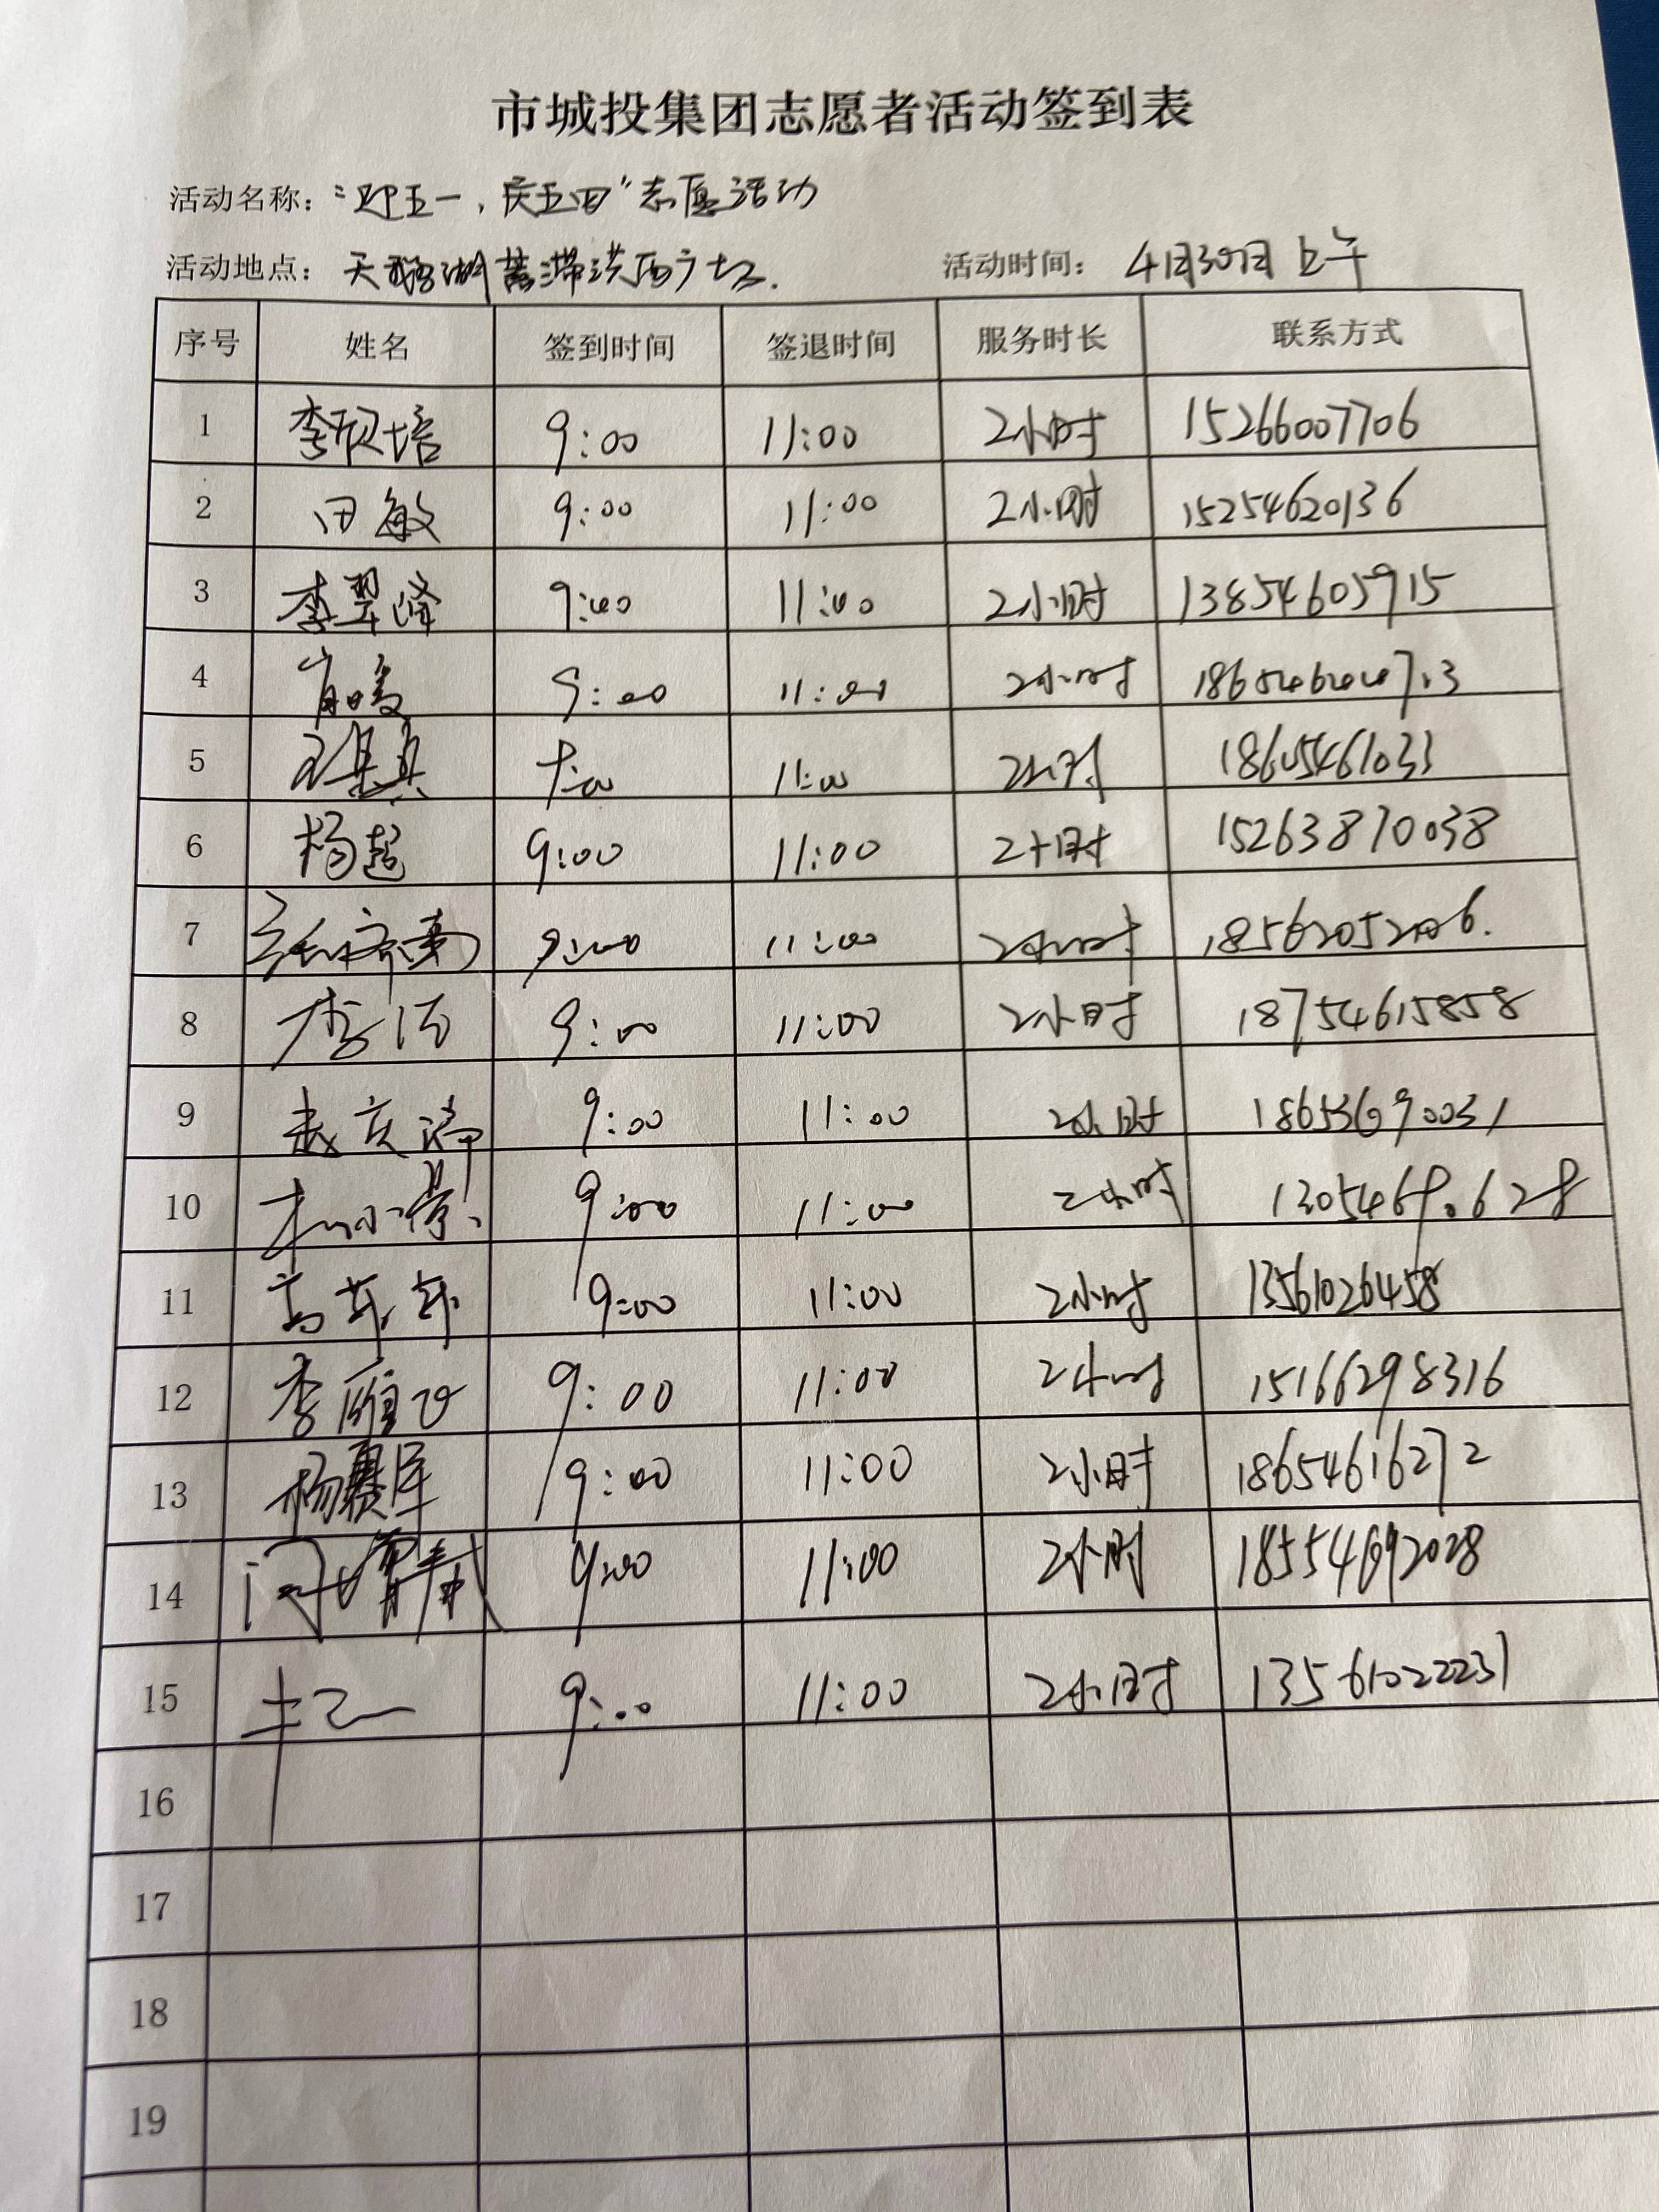 市城投集团志愿者活动签到表
活动名称：“迎五一，庆五四”志愿活动
活动地点：天鹅湖蓄滞洪区广场. 活动时间：4月30日上午
序号 姓名 签到时间 签退时间 服务时长 联系方式
1 李欣培 9:00 11:00 2小时 15266007706
2 田敏 9:00 11:00 2小时 15254620136
3 李翠峰 9:00 11:00 2小时 13854605915
4 9:00 11:00 2小时
5 9:00 11:00 2小时 18605461033
6 杨超 9:00 11:00 2小时 15263870038
7 9:00 11:00 2小时
8 9:00 11:00 2小时 18754615858
9 9:00 11:00 2小时 18653690031
10 9:00 11:00 2小时
11 9:00 11:00 2小时 13561026458
12 李雁飞 9:00 11:00 2小时 15166298316
13 杨赛军 9:00 11:00 2小时 18654616272
14 9:00 11:00 2小时 18554692028
15 9:00 11:00 2小时 13561022231
16
17
18
19